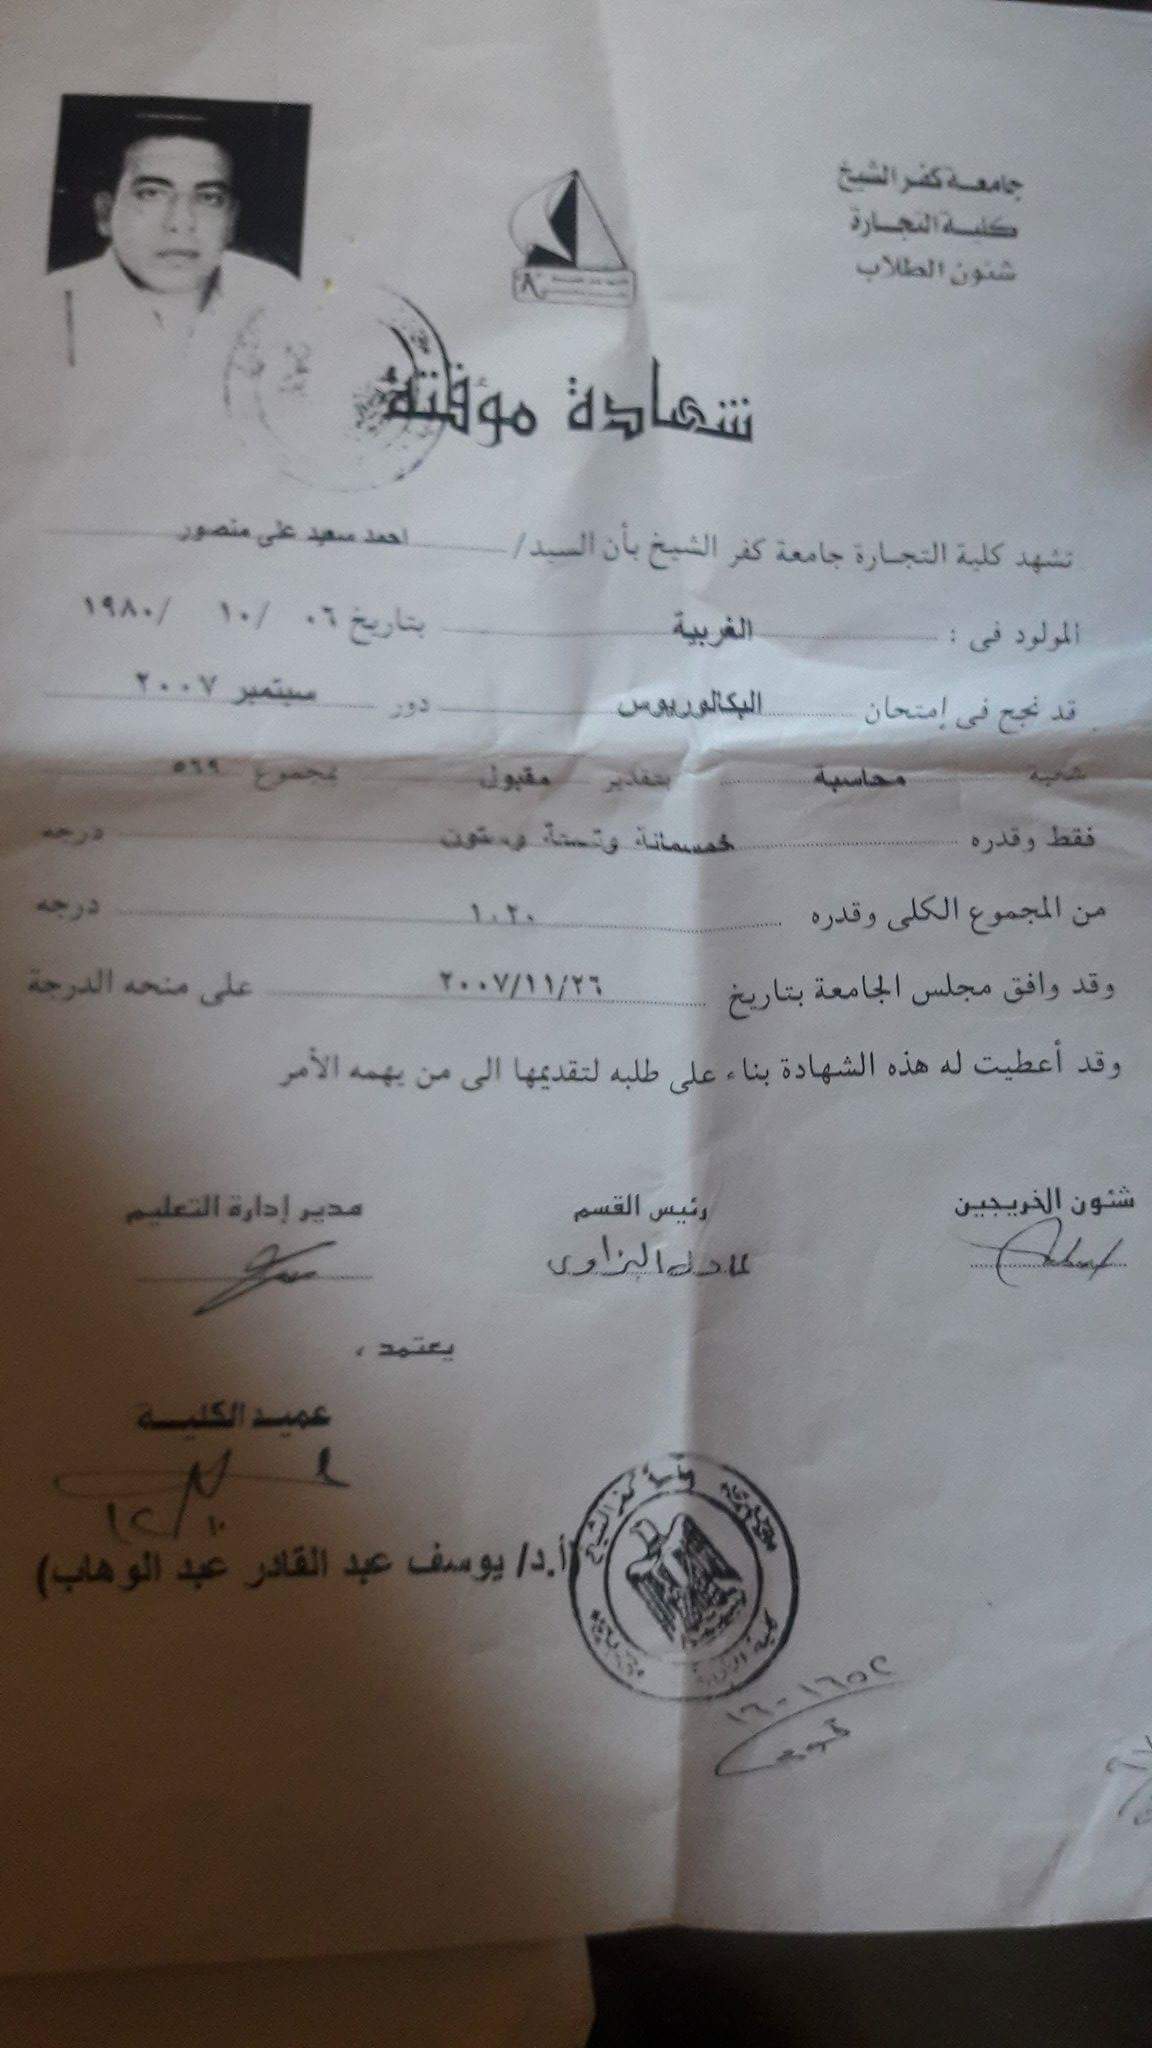 جامعة كفر الشيخ
كلية التجارة
شئون الطلاب
شهادة مؤقتة
تشهد كلية التجارة جامعة كفر الشيخ بأن السيد/ احمد سعيد على منصور
المولود فى : الغربية بتاريخ ٠٦ /١٠ /١٩٨٠
قد نجح فى إمتحان البكالوريوس دور سبتمبر ٢٠٠٧
شعبة محاسبة بتقدير مقبول بمجموع ٥٦٩
فقط وقدره خمسمائة وتسعة وستون درجه
من المجموع الكلى وقدره ١٠٢٠ درجه
وقد وافق مجلس الجامعة بتاريخ ٢٠٠٧/١١/٢٦ على منحه الدرجة
وقد أعطيت له هذه الشهادة بناء على طلبه لتقديمها الى من يهمه الأمر
شئون الخريجين رئيس القسم مدير إدارة التعليم
يعتمد ،
عميد الكلية
(أ.د/ يوسف عبد القادر عبد الوهاب)
جامعة كفر الشيخ